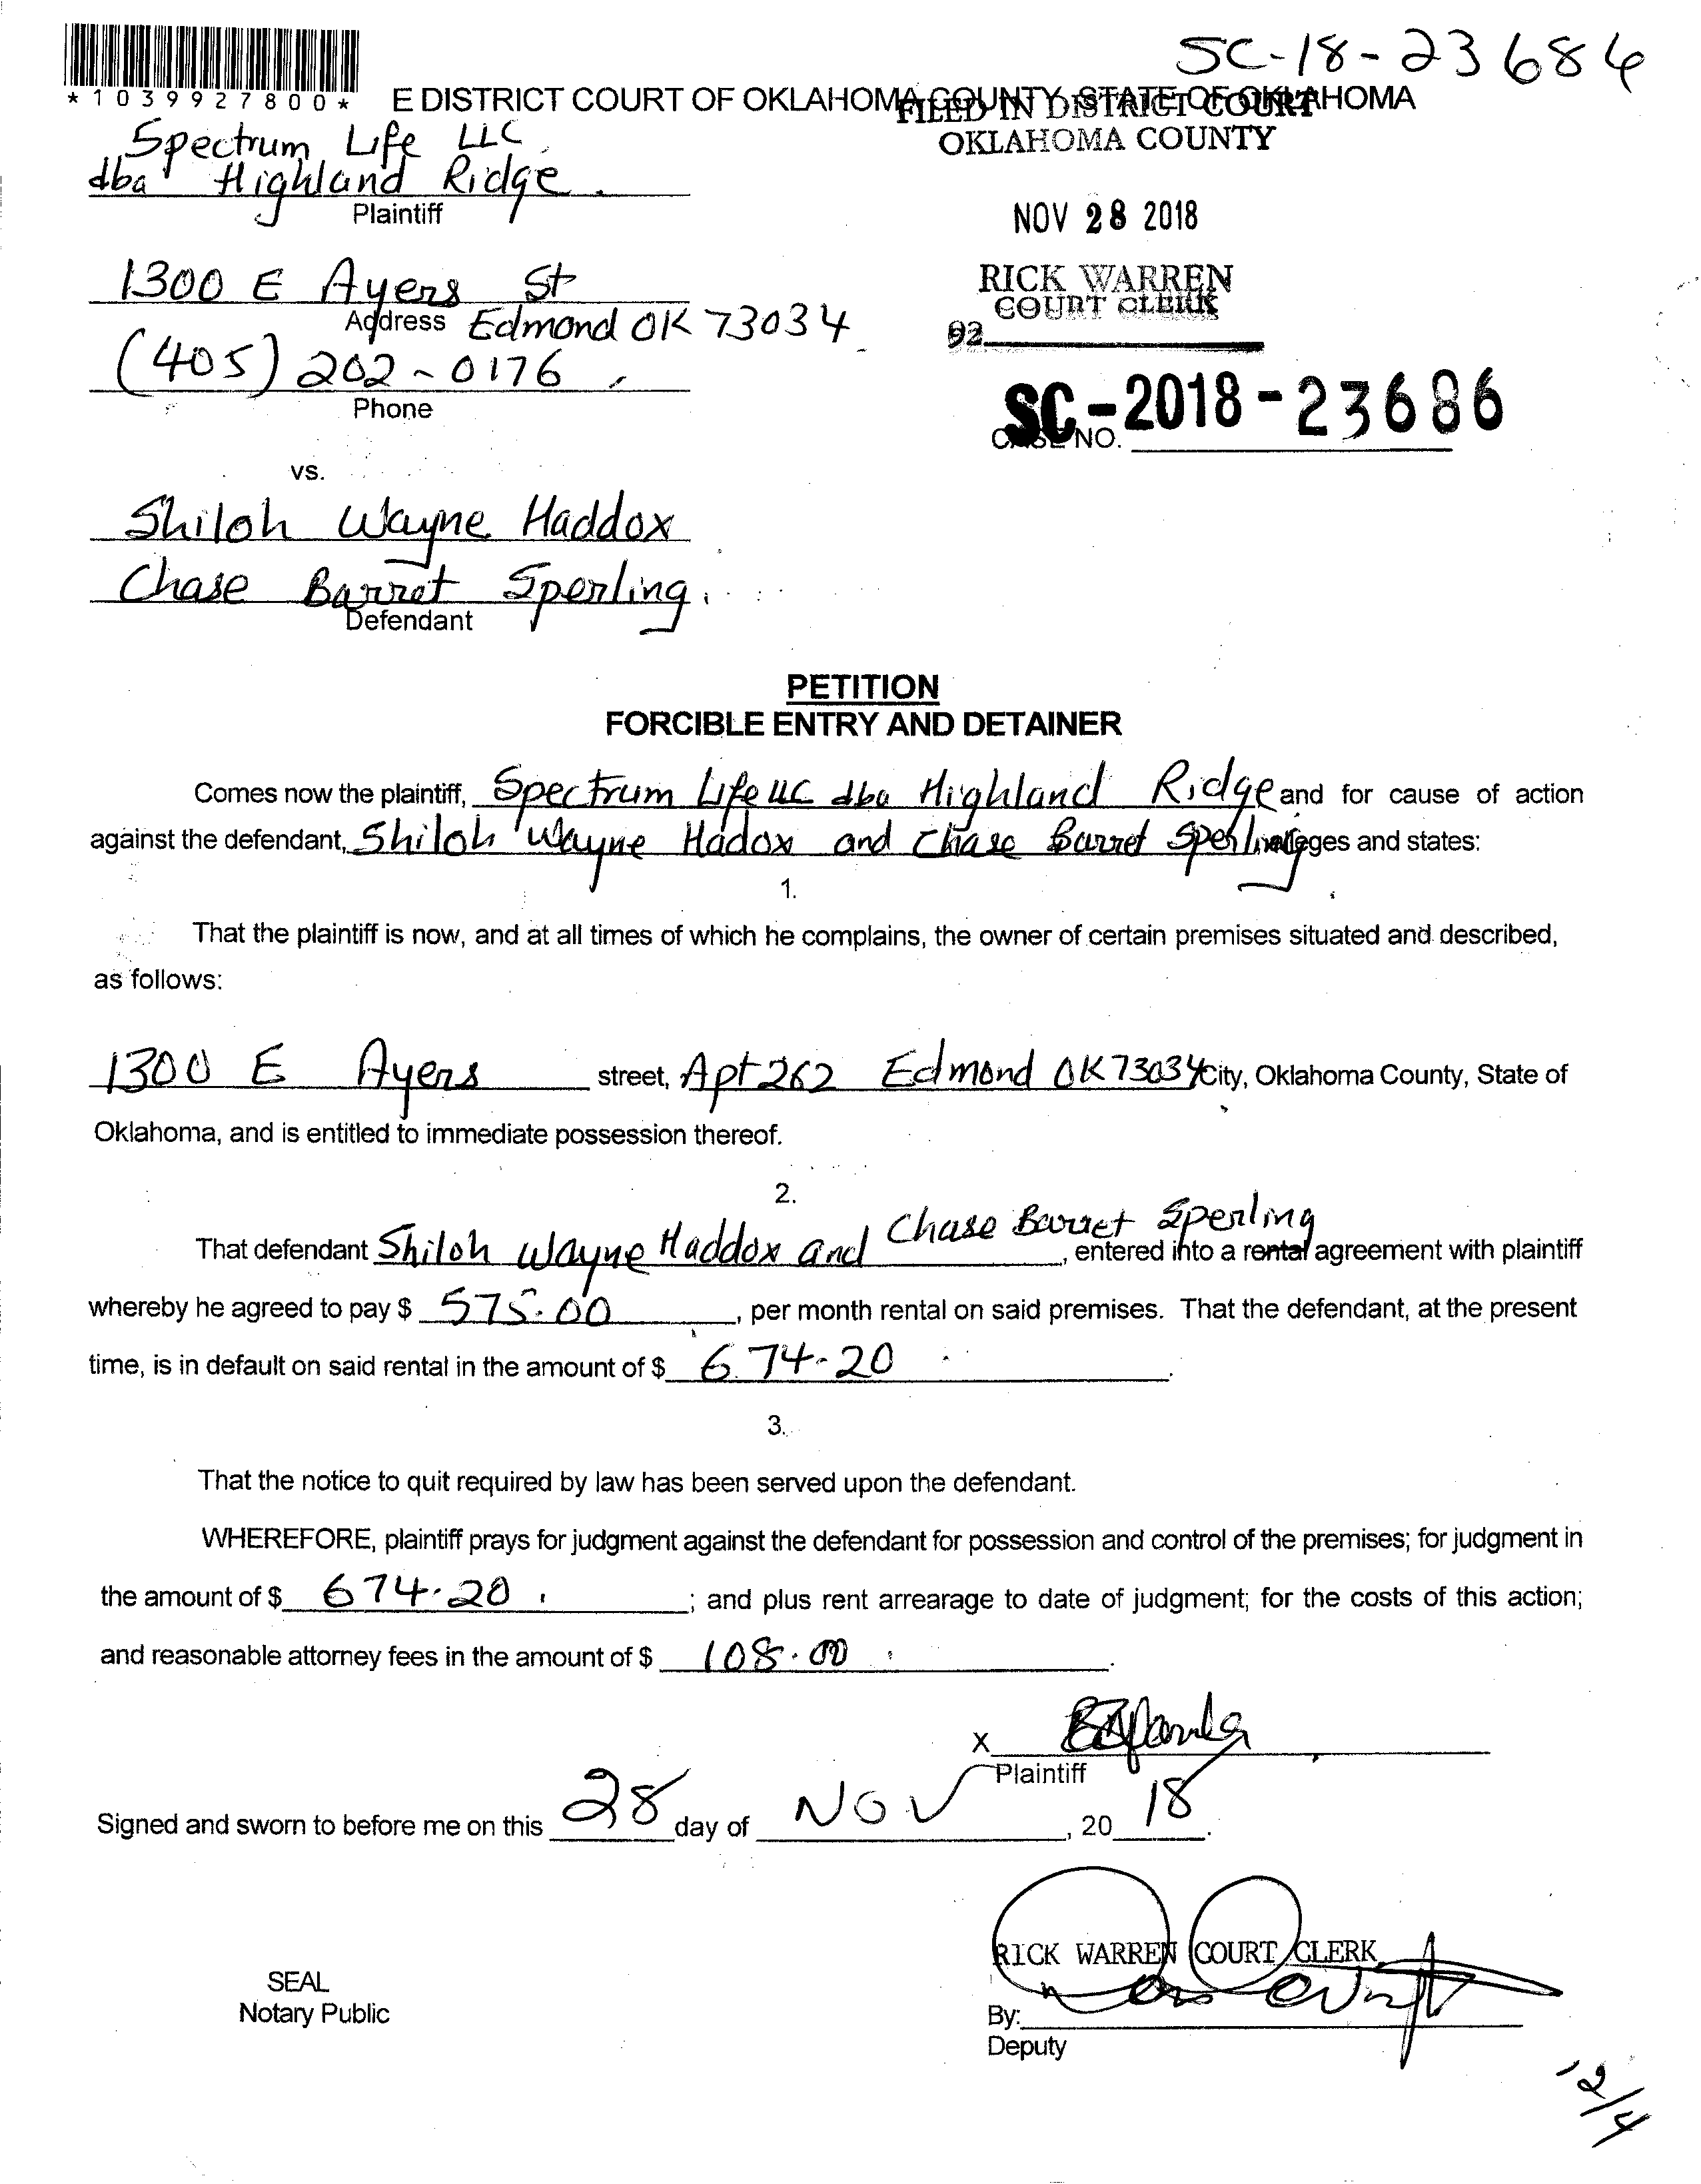 SC-18-23686
*1039927800*
E DISTRICT COURT OF OKLAHOMA COUNTY, STATE OF OKLAHOMA
FILED IN DISTRICT COURT
OKLAHOMA COUNTY
Spectrum Life LLC
dba Highland Ridge
Plaintiff
NOV 28 2018
RICK WARREN
COURT CLERK
92
1300 E Ayers St
Address Edmond OK 73034
(405) 202-0176
Phone
SC-2018-23686
CASE NO.
vs.
Shiloh Wayne Haddox
Chase Barret Sperling
Defendant
PETITION
FORCIBLE ENTRY AND DETAINER
Comes now the plaintiff, Spectrum Life LLC dba Highland Ridge and for cause of action
against the defendant, Shiloh Wayne Hadox and Chase Barret Sperling alleges and states:
1.
That the plaintiff is now, and at all times of which he complains, the owner of certain premises situated and described,
as follows:
1300 E Ayers street, Apt 262 Edmond OK 73034 City, Oklahoma County, State of
Oklahoma, and is entitled to immediate possession thereof.
2.
That defendant Shiloh Wayne Haddox and Chase Barret Sperling, entered into a rental agreement with plaintiff
whereby he agreed to pay $ 575.00, per month rental on said premises. That the defendant, at the present
time, is in default on said rental in the amount of $ 674-20.
3.
That the notice to quit required by law has been served upon the defendant.
WHEREFORE, plaintiff prays for judgment against the defendant for possession and control of the premises; for judgment in
the amount of $ 674.20; and plus rent arrearage to date of judgment; for the costs of this action;
and reasonable attorney fees in the amount of $ 108.00.
X
Plaintiff
Signed and sworn to before me on this 28 day of NOV, 20 18.
RICK WARREN COURT CLERK
SEAL
Notary Public
By:
Deputy
12/4